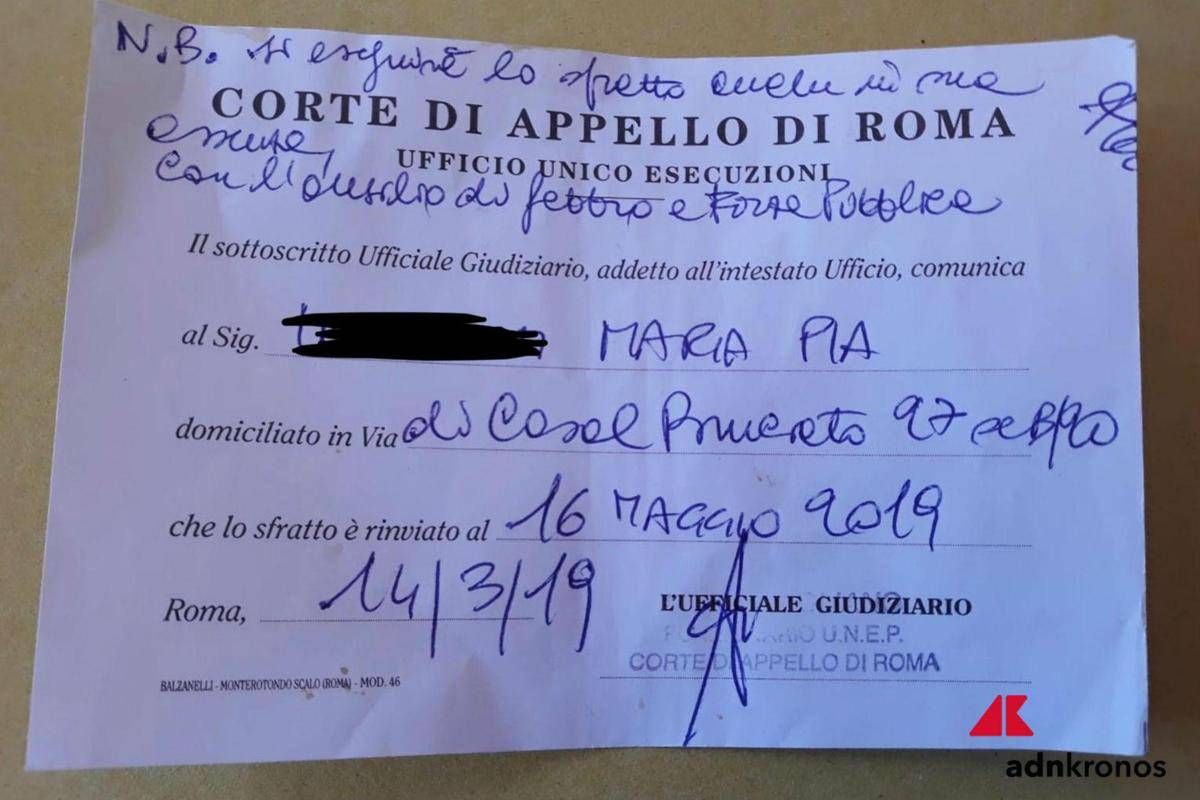 N.B. si eseguirà lo sfratto anche in sua
CORTE DI APPELLO DI ROMA
assenza,
UFFICIO UNICO ESECUZIONI
con l'ausilio di fabbro e Forza Pubblica
Il sottoscritto Ufficiale Giudiziario, addetto all'intestato Ufficio, comunica
al Sig. MARIA PIA
domiciliato in Via di Casal Bruciato 27
che lo sfratto è rinviato al 16 MAGGIO 2019
Roma, 14/3/19
L'UFFICIALE GIUDIZIARIO
U.N.E.P.
CORTE DI APPELLO DI ROMA
BALZANELLI - MONTEROTONDO SCALO (ROMA) - MOD. 46
adnkronos